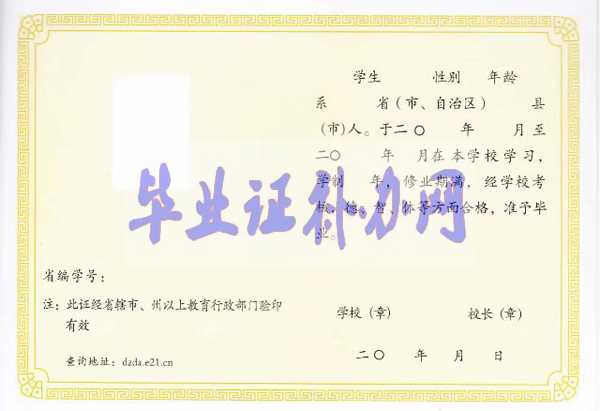 学生 性别 年龄
系 省(市、自治区) 县
(市)人。于二〇 年 月至
二〇 年 月在本学校学习,
学制 年,修业期满,经学校考
核,德、智、体等方面合格,准予毕
业。
毕业证补办网
省编学号:
注:此证经省辖市、州以上教育行政部门验印
有效
学校(章) 校长(章)
查询地址:dzda.e21.cn
二〇 年 月 日